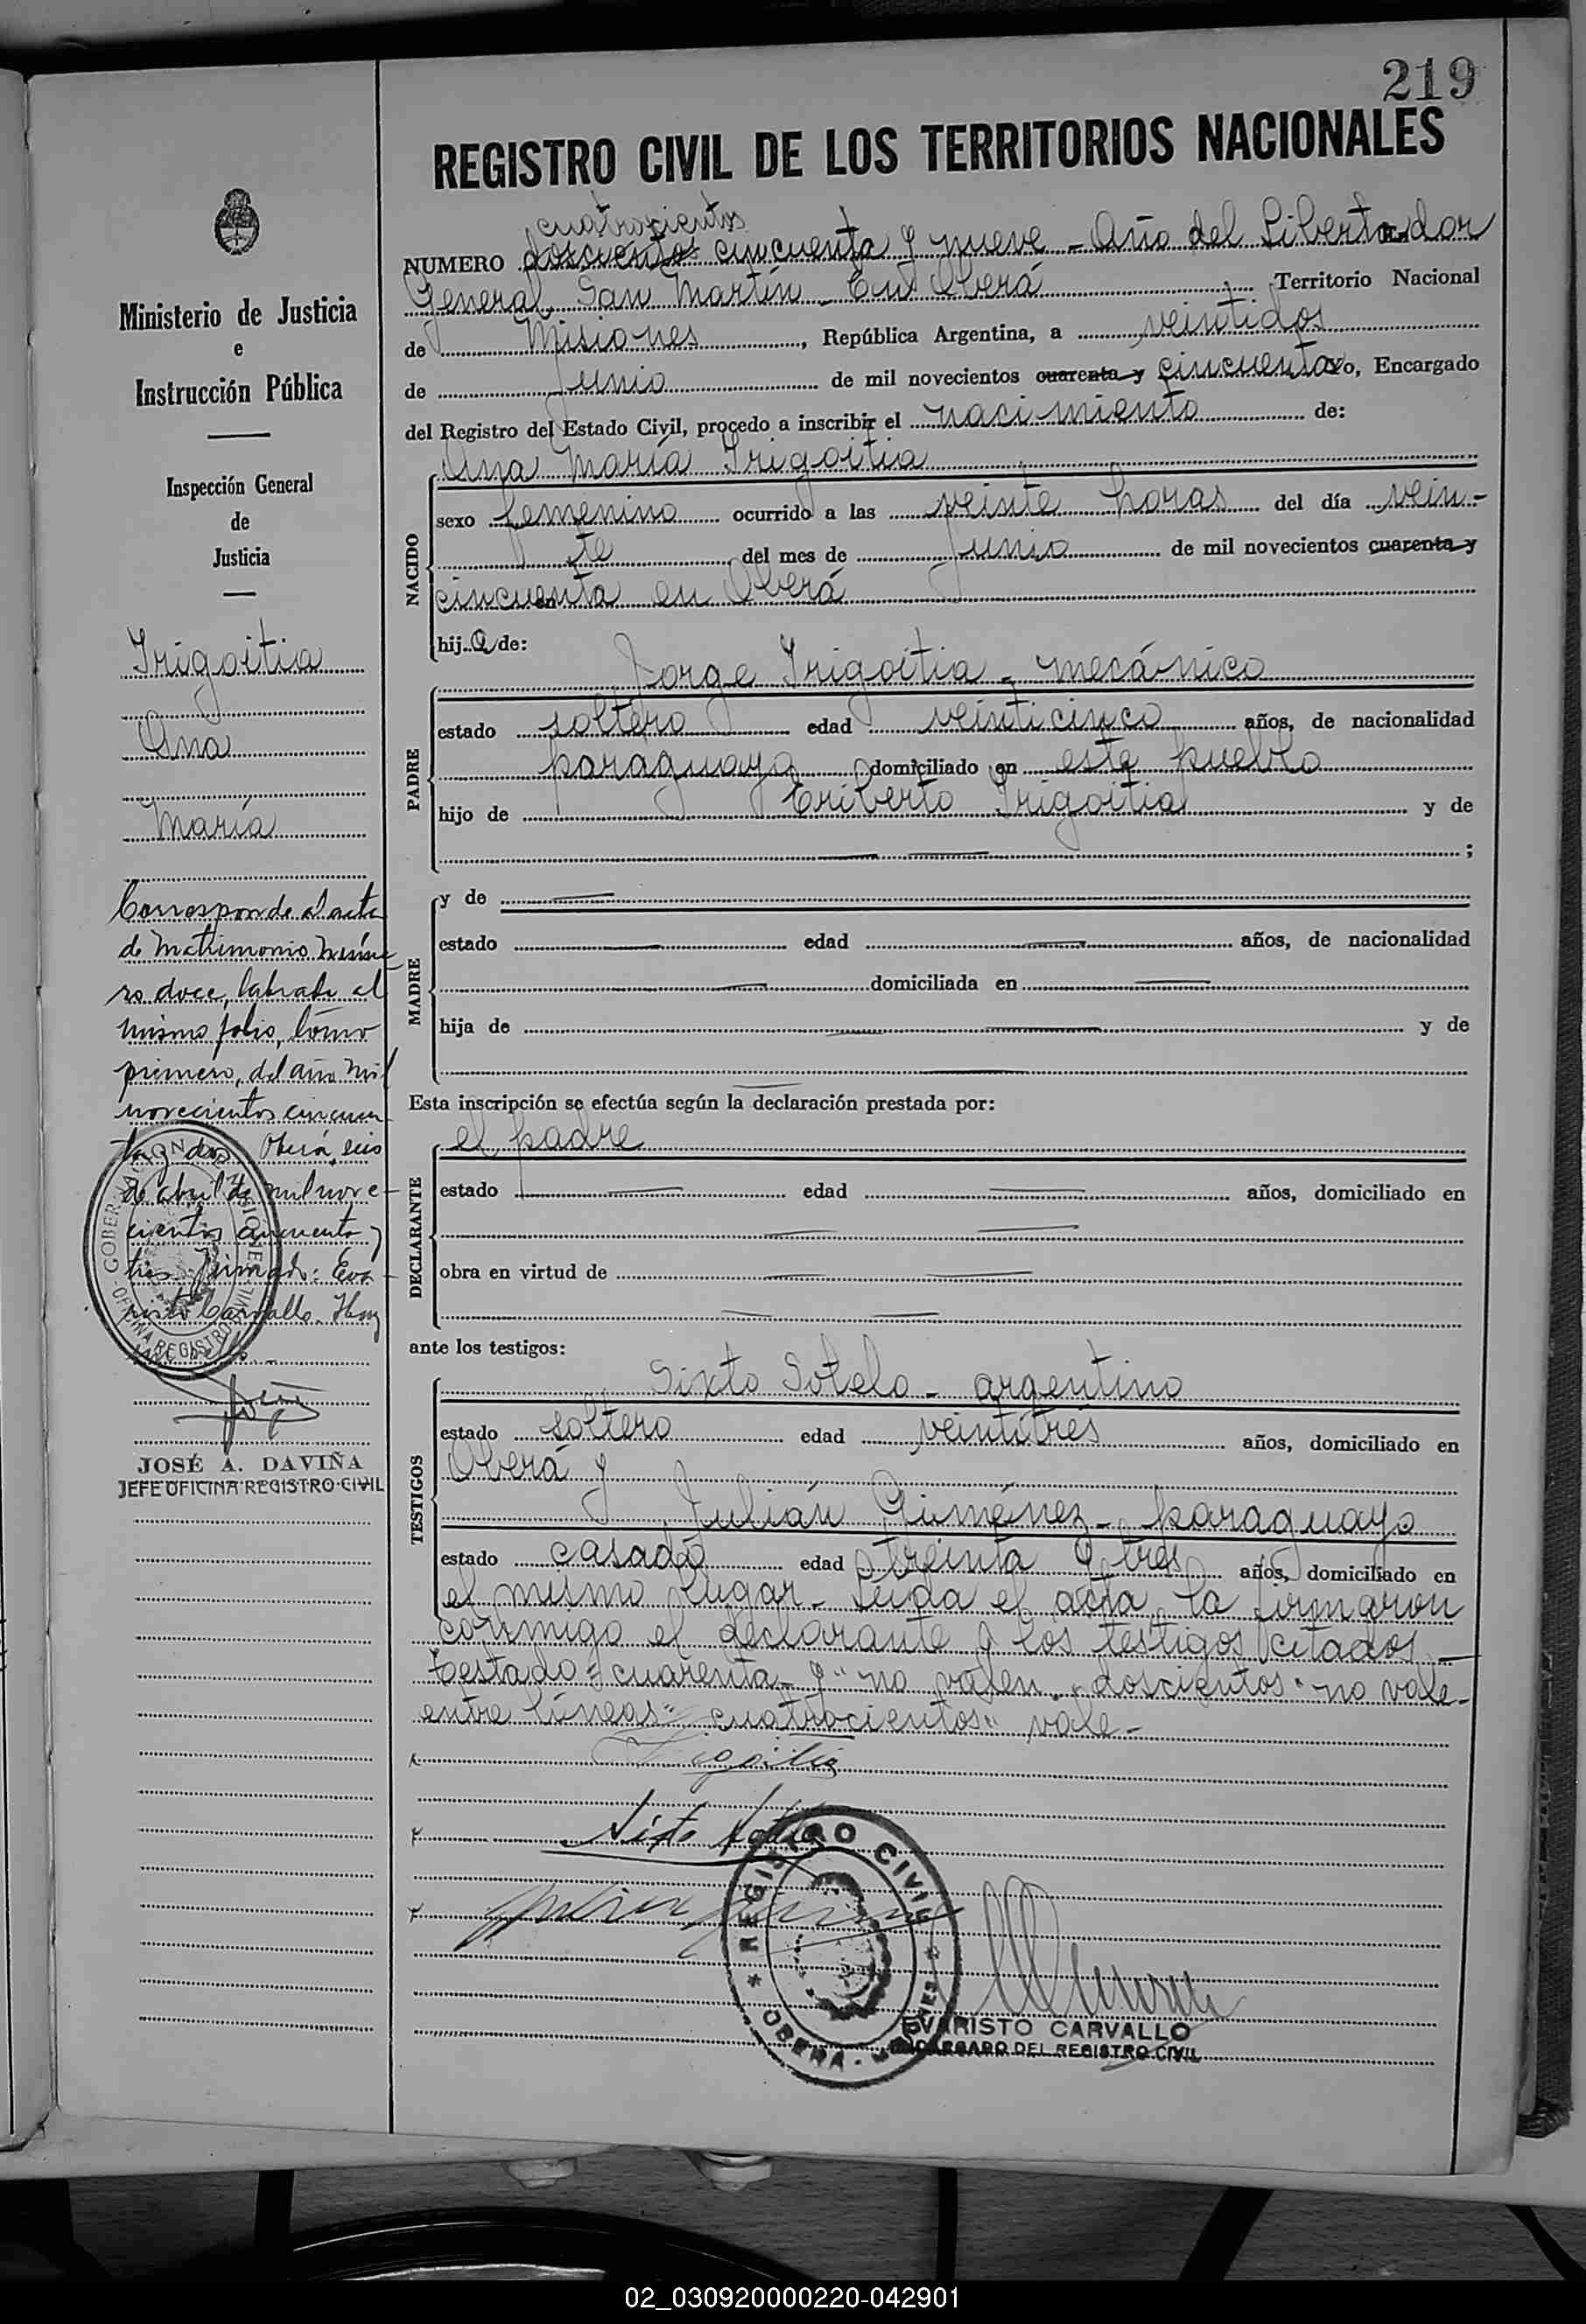 219
REGISTRO CIVIL DE LOS TERRITORIOS NACIONALES
cuatrocientos
NUMERO doscientos cincuenta y nueve - Año del Libertador
General San Martín - En Oberá Territorio Nacional
de Misiones, República Argentina, a veintidos
de Junio de mil novecientos cuarenta y cincuenta yo, Encargado
del Registro del Estado Civil, procedo a inscribir el nacimiento de:
NACIDO
Ana María Irigoitia
sexo femenino ocurrido a las veinte horas del día vein-
te del mes de Junio de mil novecientos cuarenta y
cincuenta en Oberá
hija de:
PADRE
Jorge Irigoitia - mecánico
estado soltero edad veinticinco años, de nacionalidad
paraguaya domiciliado en este pueblo
hijo de Eriberto Irigoitia y de
;
MADRE
y de
estado edad años, de nacionalidad
domiciliada en
hija de y de
Esta inscripción se efectúa según la declaración prestada por:
DECLARANTE
el padre
estado edad años, domiciliado en
obra en virtud de
ante los testigos:
TESTIGOS
Sixto Sotelo - argentino
estado soltero edad veintitrés años, domiciliado en
Oberá y
Julián Giménez - paraguayo
estado casado edad treinta y tres años, domiciliado en
el mismo lugar - Leída el acta, la firmaron
conmigo el declarante y los testigos citados -
Testado "cuarenta y" no valen. "doscientos" no vale -
entre líneas "cuatrocientos" vale -
Irigoitia
Sixto Sotelo
Julian Gimenez
REGISTRO CIVIL
* OBERA - MISIONES *
EVARISTO CARVALLO
ENCARGADO DEL REGISTRO CIVIL
Ministerio de Justicia
e
Instrucción Pública
Inspección General
de
Justicia
Irigoitia
Ana
María
Corresponde al acta
de Matrimonio núme-
ro doce, labrada al
mismo folio, tomo
primero, del año mil
novecientos cincuen
ta y dos. Oberá, seis
de abril de mil nove-
cientos cincuenta y
tres. Firmado: Eva-
risto Carvallo. Hay
un sello.-
JOSÉ A. DAVIÑA
JEFE OFICINA REGISTRO CIVIL
02_030920000220-042901